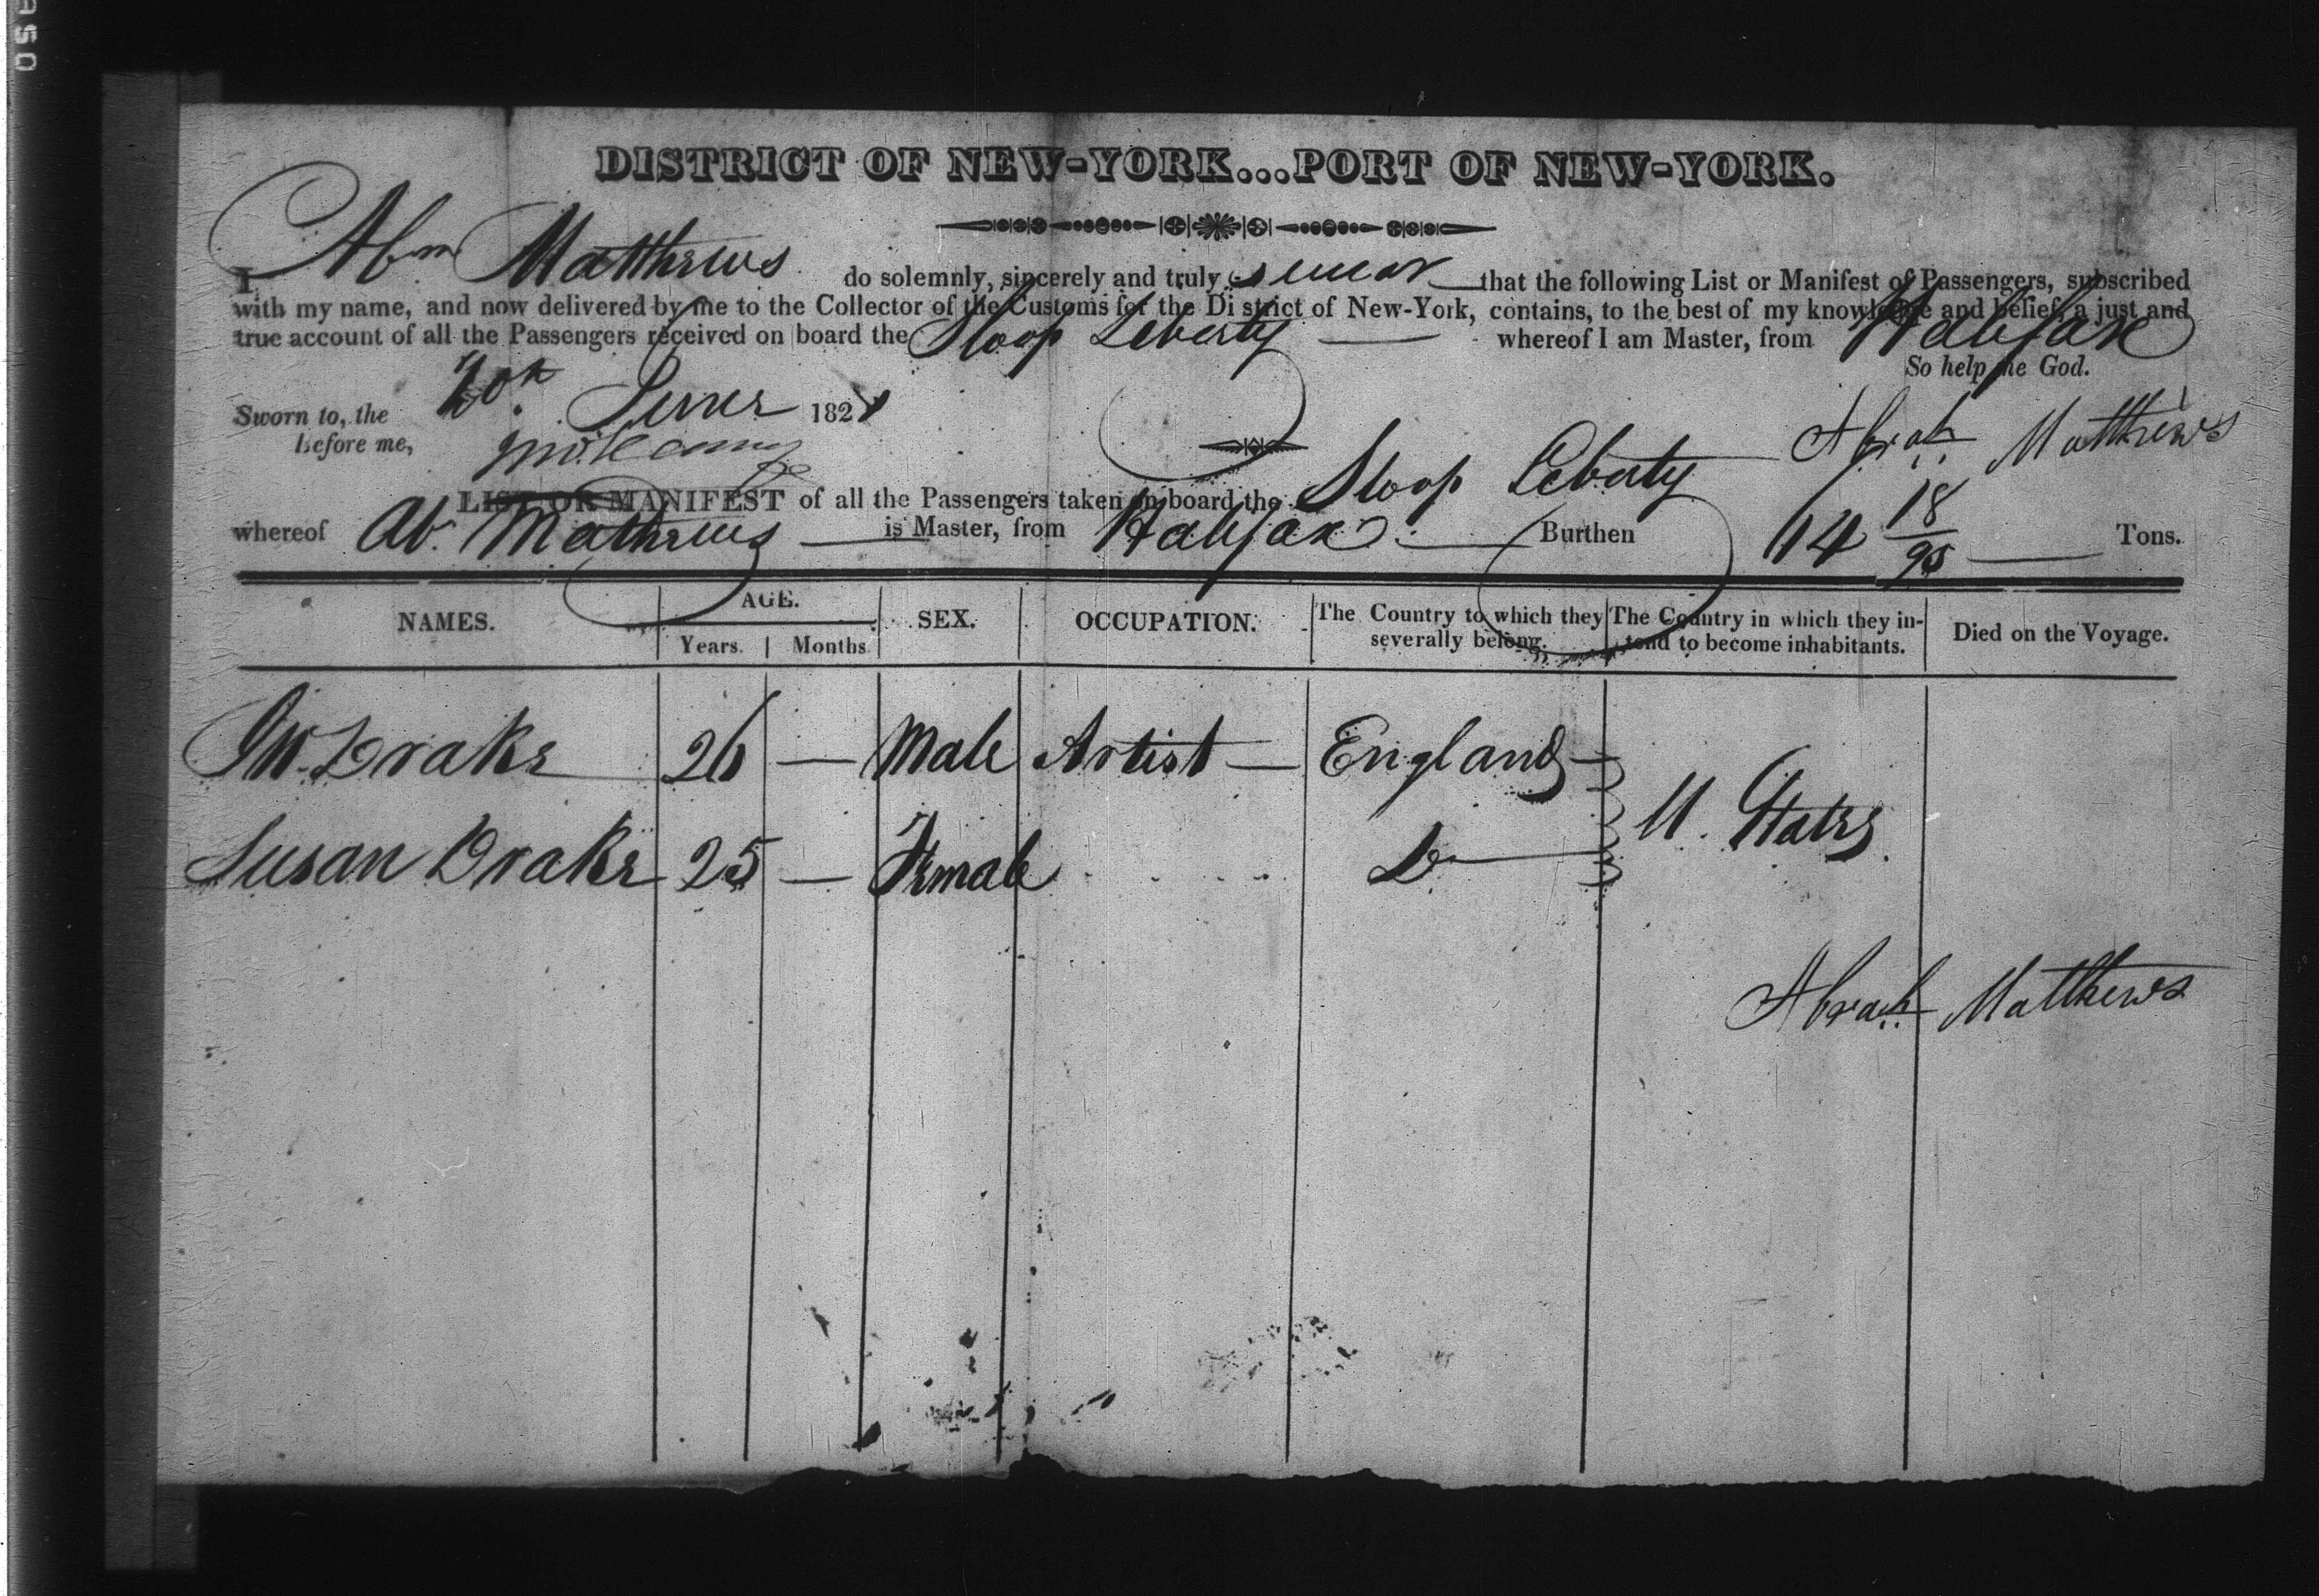 DISTRICT OF NEW-YORK...PORT OF NEW-YORK.
I Abm Matthews do solemnly, sincerely and truly swear that the following List or Manifest of Passengers, subscribed
with my name, and now delivered by me to the Collector of the Customs for the District of New-York, contains, to the best of my knowledge and belief, a just and
true account of all the Passengers received on board the Sloop Liberty whereof I am Master, from Halifax
So help me God.
Sworn to, the June 182
before me,
Abrah Matthews
LIST OR MANIFEST of all the Passengers taken on board the Sloop Liberty
whereof Ab. Mathews is Master, from Halifax Burthen 14 18/95 Tons.
NAMES. AGE. SEX. OCCUPATION. The Country to which they severally belong. The Country in which they intend to become inhabitants. Died on the Voyage.
Years. Months.
Drake 26 — Male Artist — England —
U. States
Susan Drake 25 — Female Do
Abrah Matthews